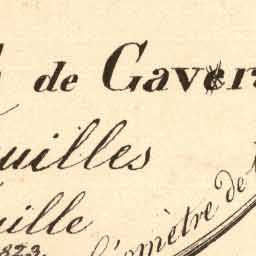 de Gaver
uilles
uille
823.
omètre de